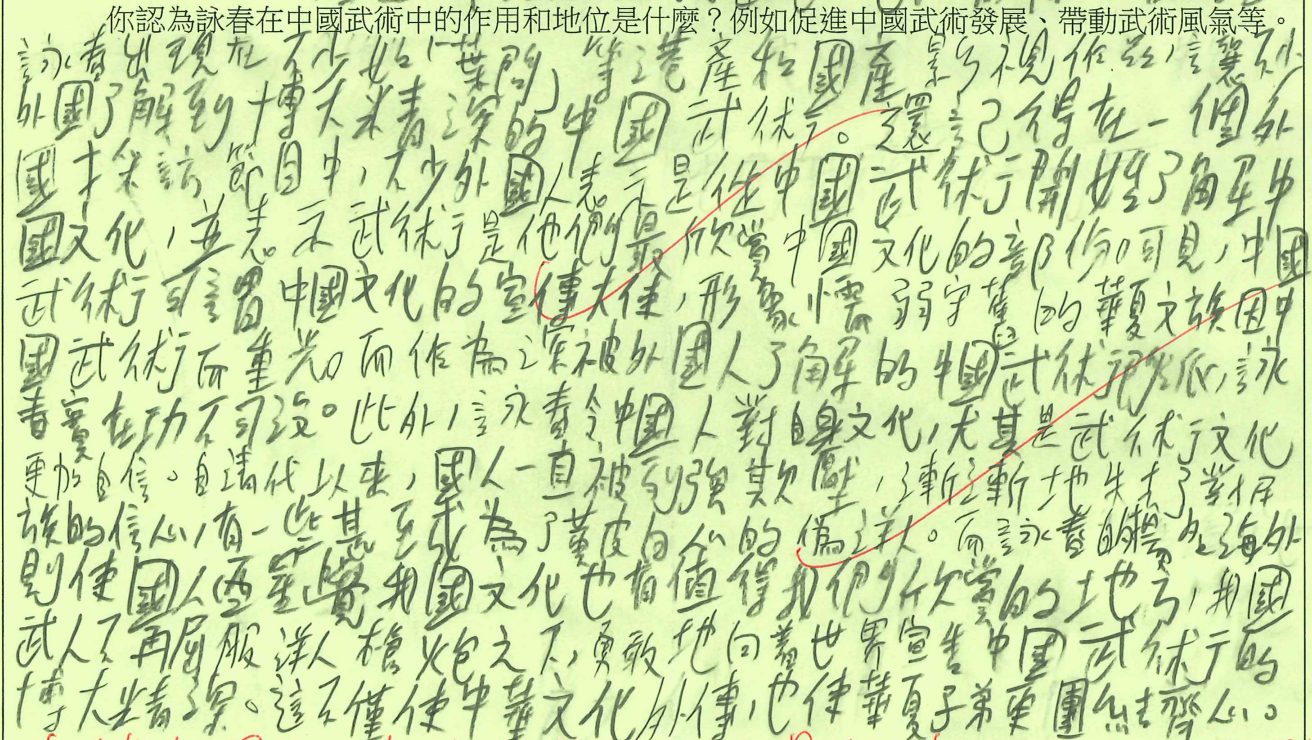 你認為詠春在中國武術中的作用和地位是什麼？例如促進中國武術發展、帶動武術風氣等。
詠春出現在不少如「葉問」等港產和國產影視作品，讓不少
外國了解到博大精深的中國武術。還記得在一個外
國才采訪節目中，不少外國人表示是從中國武術開始了解中
國文化，並表示武術是他們最欣賞中國文化的部份。可見，中國
武術可謂中國文化的宣傳大使，形象懦弱守舊的華夏文族因中
國武術而重光。而作為深被外國人了解的中國武術派，詠
春實在功不可沒。此外，詠春令中國人對自身文化，尤其是武術文化
更加自信。自清代以來，國人一直被列強欺壓，漸漸地失去了對民
族的信心，有一些甚至成為了黃皮白心的偽洋人。而詠春的揚名海外
則使國人醒覺我國文化也有值得我們欣賞的地方，我國
武人不再屈服洋人槍炮之下，勇敢地向着世界宣告中國武術的
博大精深。這不僅使中華文化外傳，也使華夏子弟更團結齊心。